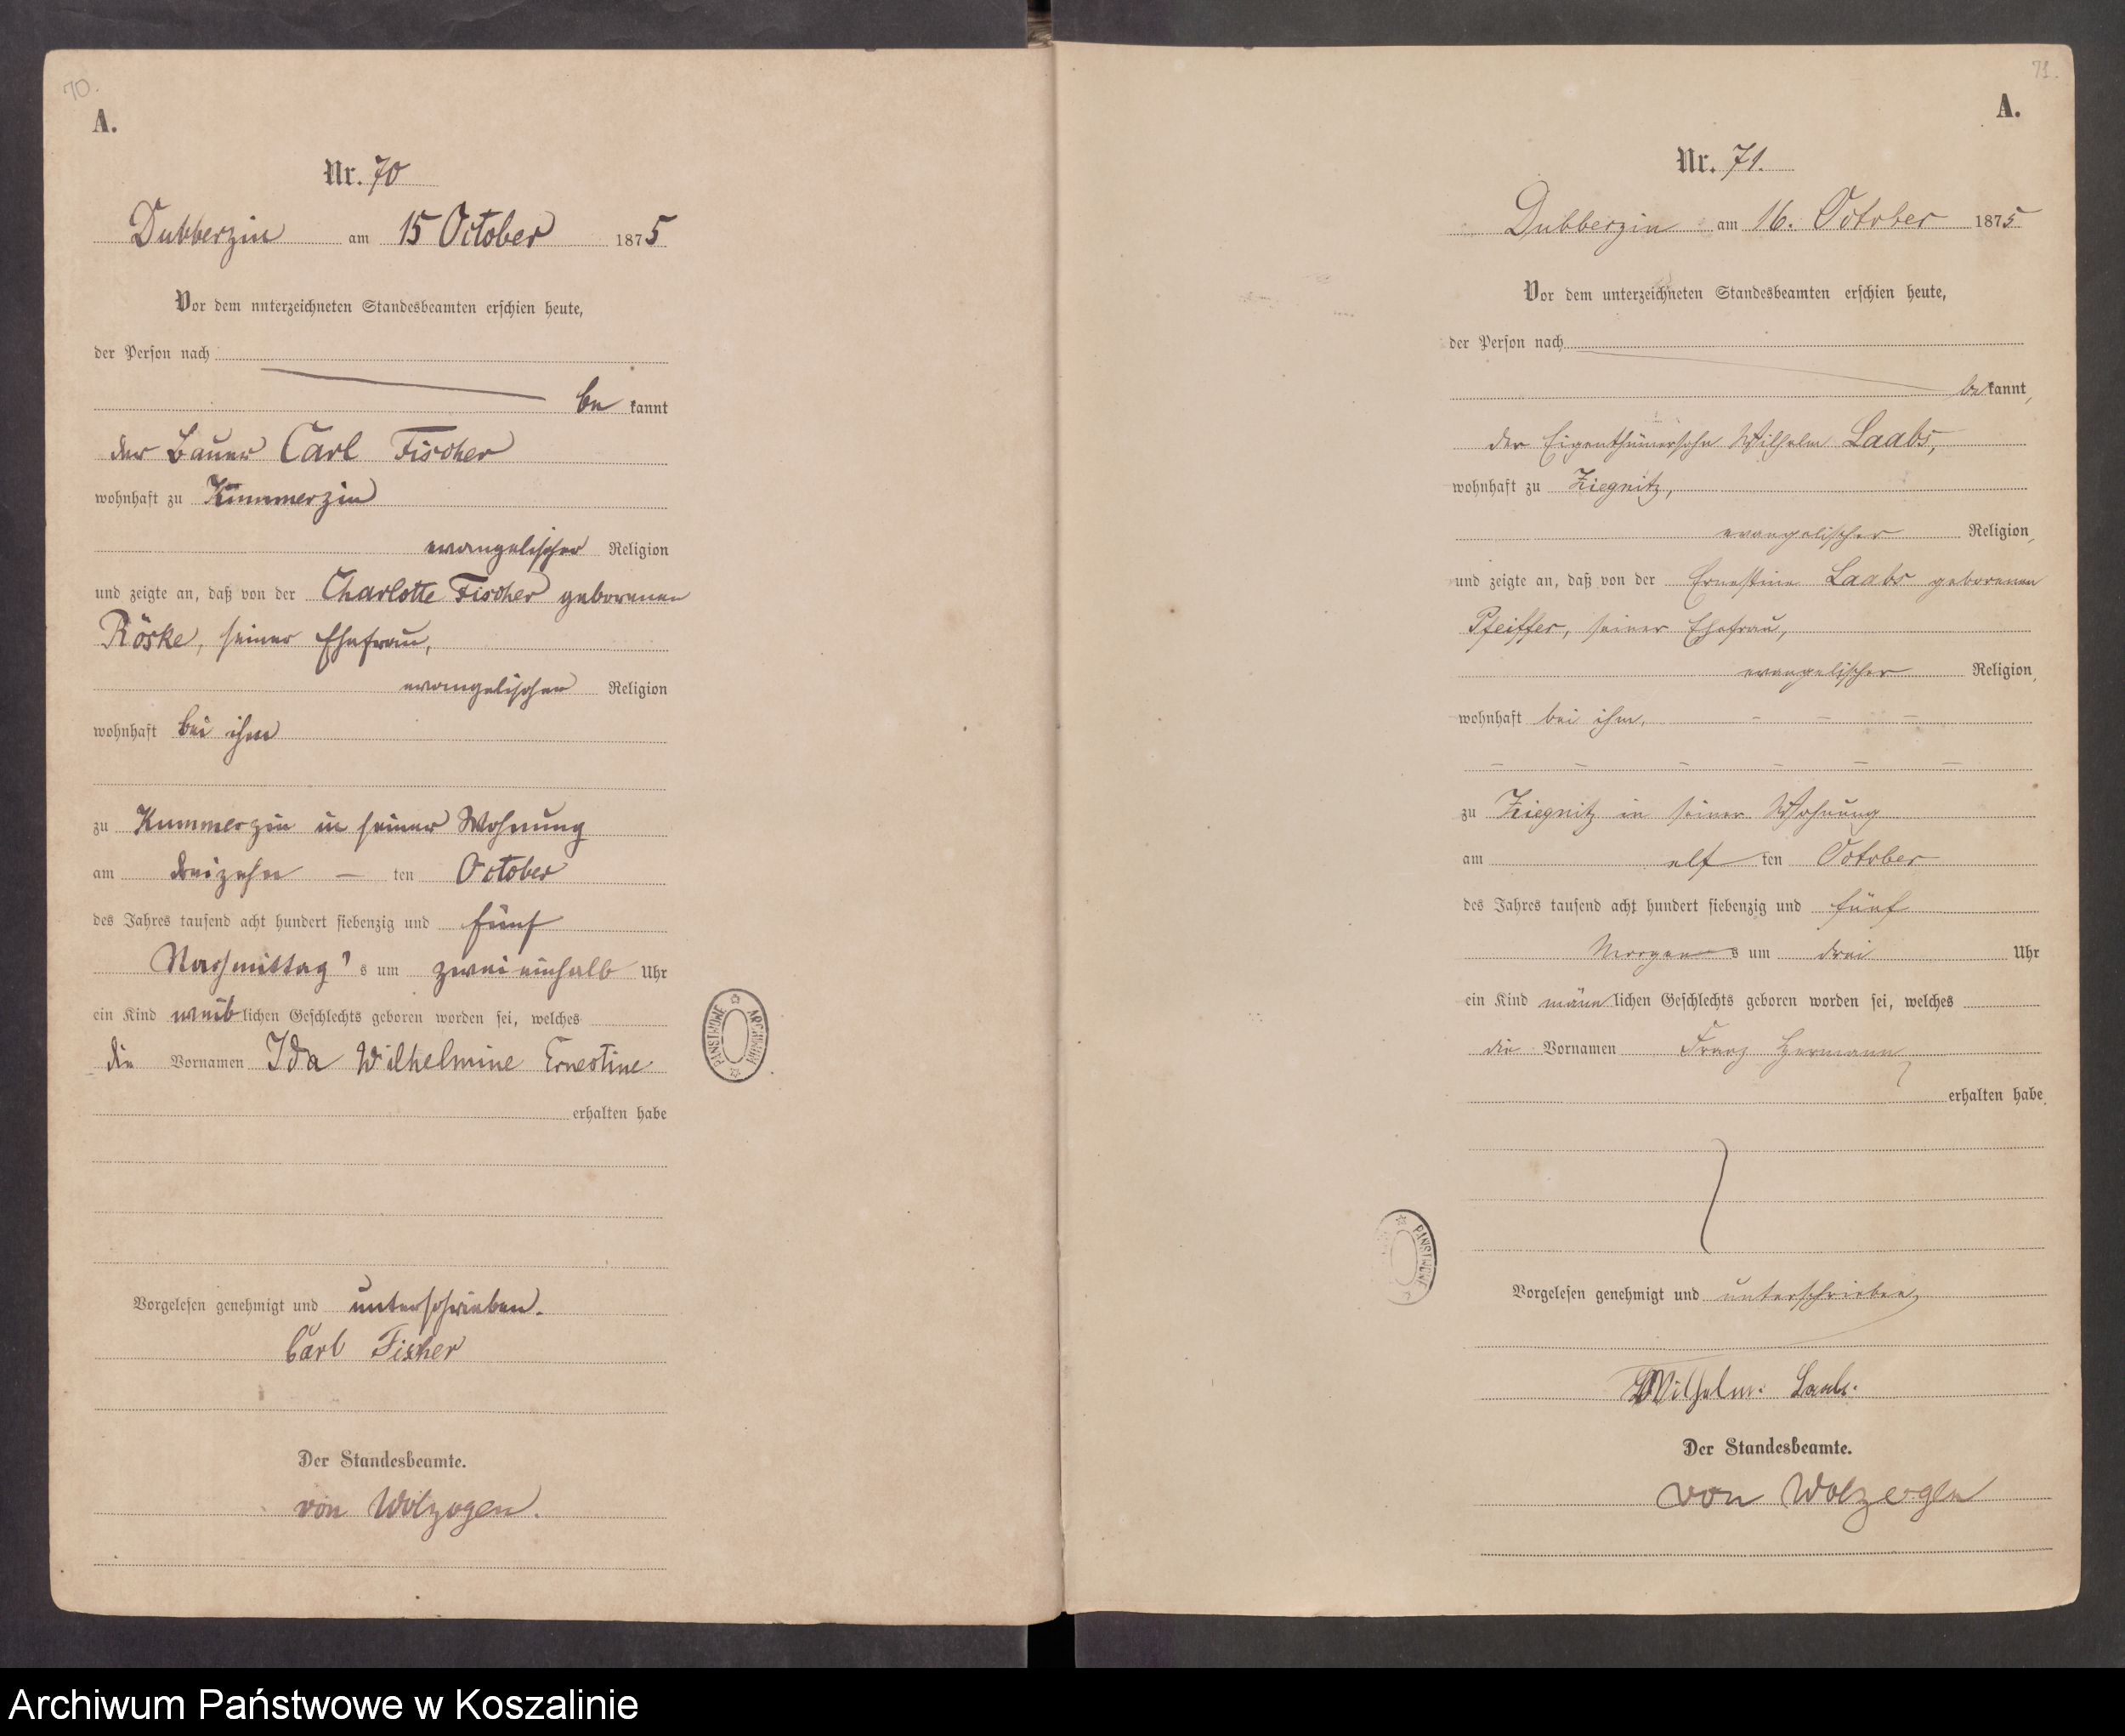 70.
A.
Nr. 70
Dubberzin am 15 October 1875
Vor dem nnterzeichneten Standesbeamten erschien heute,
der Person nach
be kannt
der Bauer Carl Fischer
wohnhaft zu Kummerzin
evangelischer Religion
und zeigte an, daß von der Charlotte Fischer geborenen
Röske, seiner Ehefrau,
evangelischen Religion
wohnhaft bei ihm
zu Kummerzin in seiner Wohnung
am dreizehn — ten October
des Jahres tausend acht hundert siebenzig und fünf
Nachmittag's um zwei einhalb Uhr
ein Kind weiblichen Geschlechts geboren worden sei, welches
die Vornamen Ida Wilhelmine Ernestine
erhalten habe
Vorgelesen genehmigt und unterschrieben.
Carl Fischer
Der Standesbeamte.
von Wolzogen.
PAŃSTWOWE ARCHIWUM
71.
A.
Nr. 71.
Dubberzin am 16. October 1875
Vor dem unterzeichneten Standesbeamten erschien heute,
der Person nach
bekannt,
der Eigenthümersohn Wilhelm Laabs,
wohnhaft zu Ziegnitz,
evangelischer Religion,
und zeigte an, daß von der Ernestine Laabs geborenen
Pfeiffer, seiner Ehefrau,
evangelischer Religion,
wohnhaft bei ihm, – – –
– – – – – –
zu Ziegnitz in seiner Wohnung
am elf ten October
des Jahres tausend acht hundert siebenzig und fünf
Morgens um drei Uhr
ein Kind männlichen Geschlechts geboren worden sei, welches
die Vornamen Franz Hermann,
erhalten habe.
Vorgelesen genehmigt und unterschrieben,
Wilhelm Laabs.
Der Standesbeamte.
von Wolzogen
PAŃSTWOWE
Archiwum Państwowe w Koszalinie